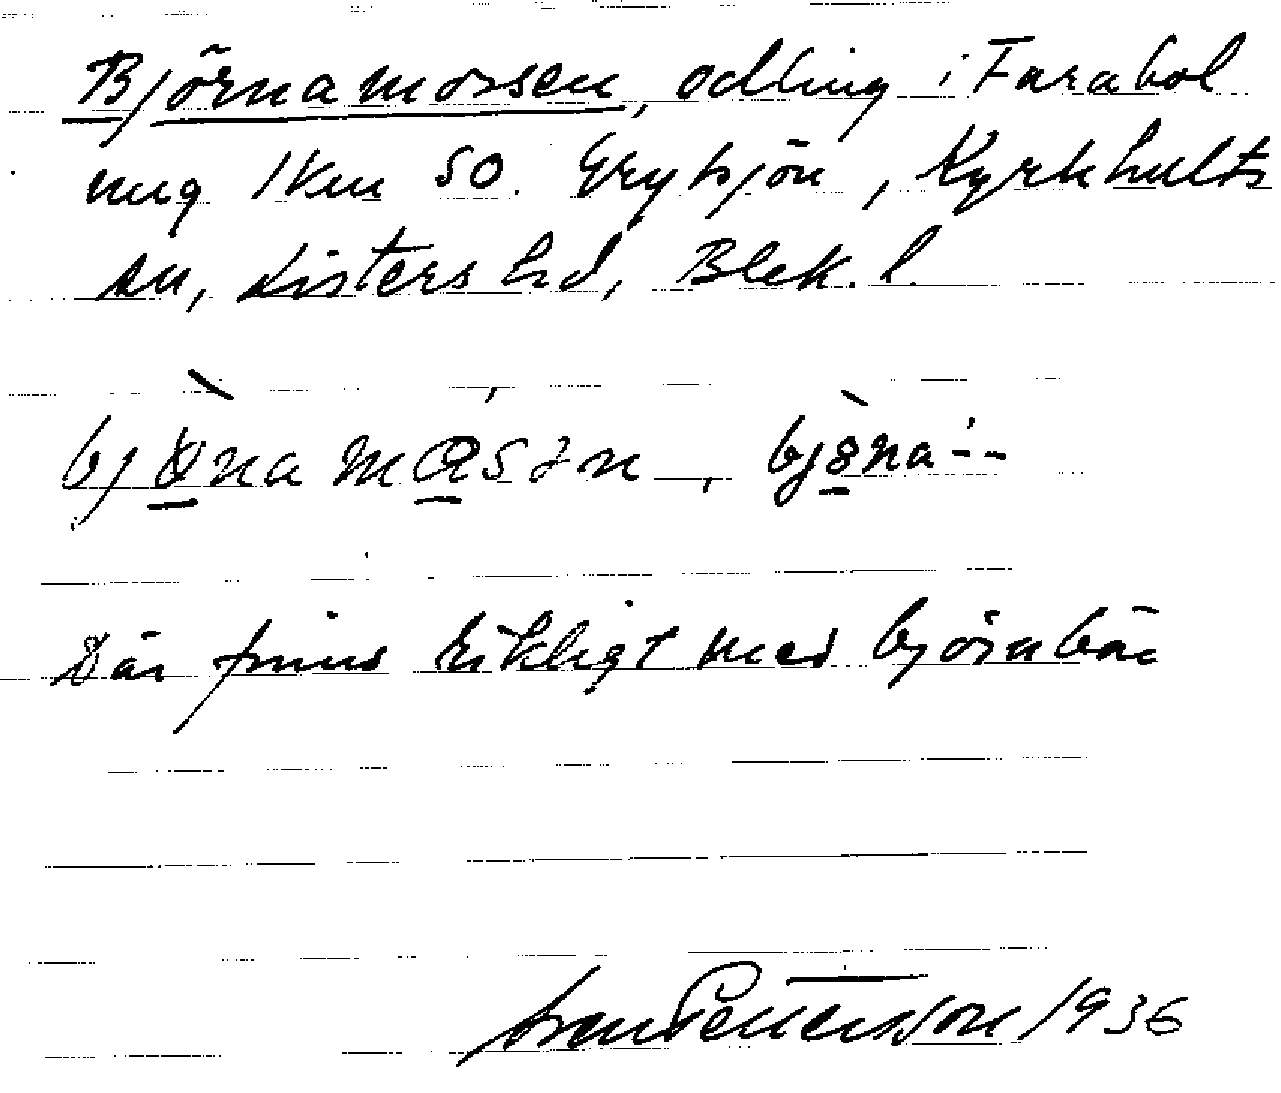 Björnamossen, odling i Farabol
ung 1 km SO. Grytsjön, Kyrkhults
sn, Listers hd, Blek. l.
bjönamåsən, bjöna---
Där finns rikligt med björnbär
Sven Pettersson 1936